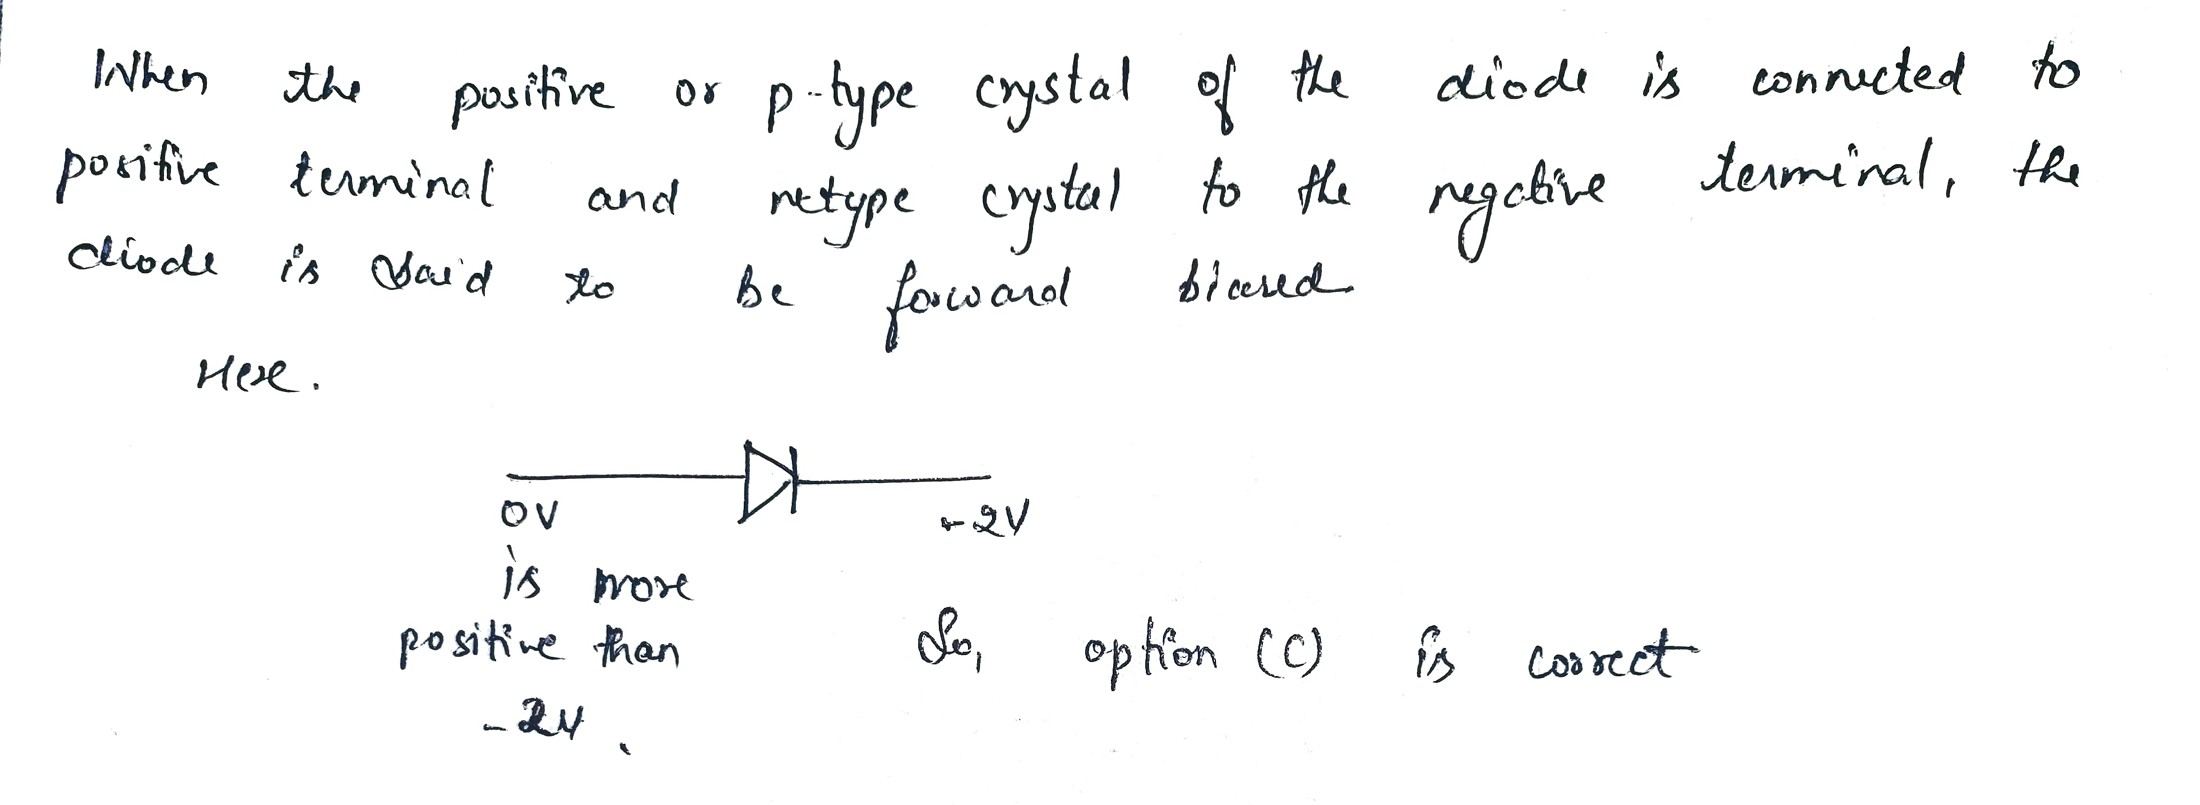 When the positive or p-type crystal of the diode is connected to
positive terminal and netype crystal to the negative terminal, the
diode is said to be forward biased
Here.
0V
-2V
is more
positive than
-2V.
So, option (C) is correct